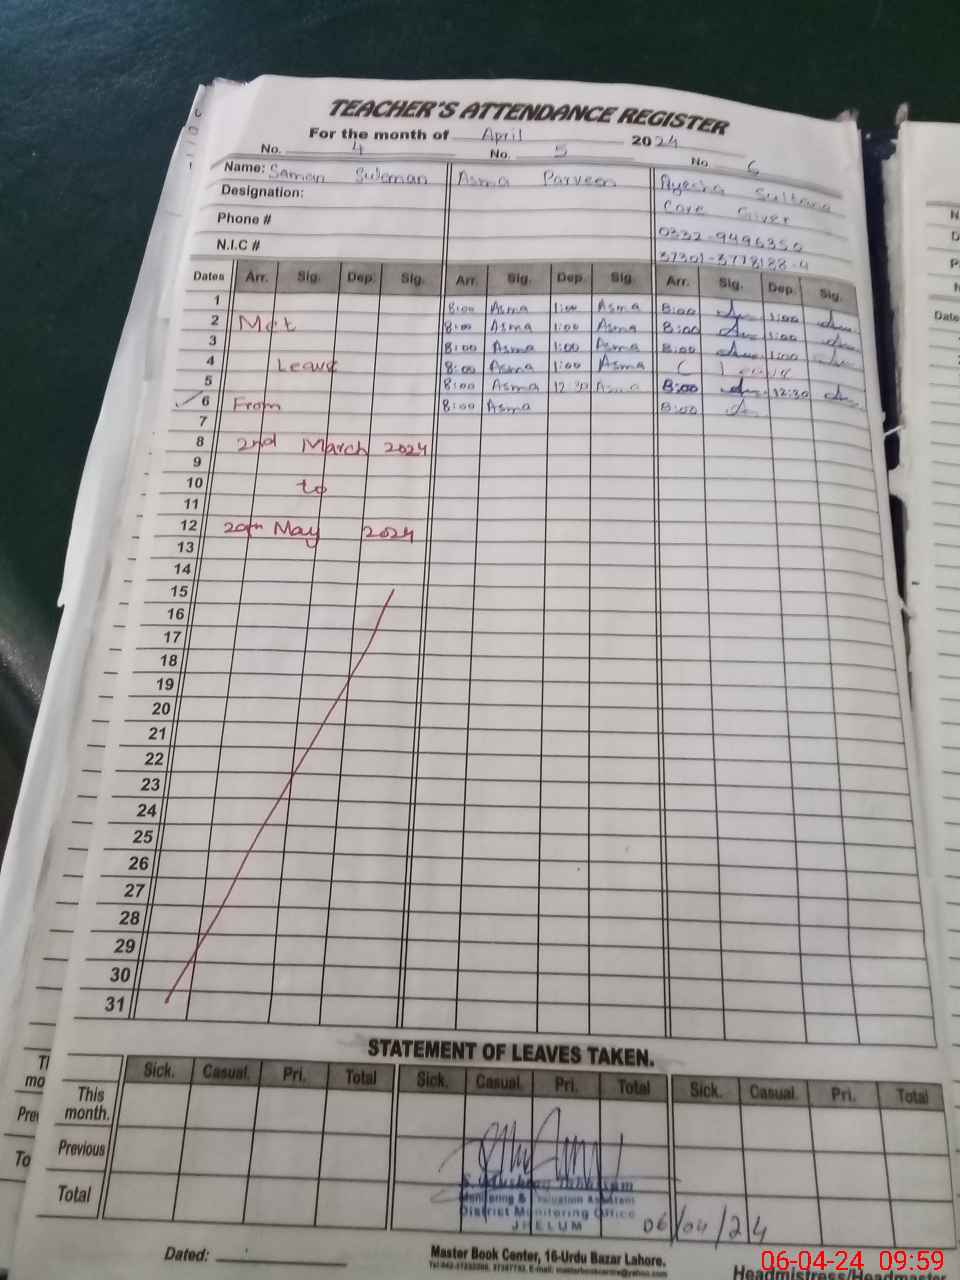 TEACHER'S ATTENDANCE REGISTER
For the month of April 2024
No. 4 No. 5 No. 6
Name: Saman Suleman Asma Parveen Ayesha Sultana
Designation: Care Giver
Phone # 0332-9496350
N.I.C # 37301-3778188-4
Dates Arr. Sig. Dep. Sig. Arr. Sig. Dep. Sig. Arr. Sig. Dep. Sig.
1 8:00 Asma 1:00 Asma 8:00 1:00
2 Mat 8:00 Asma 1:00 Asma 8:00 1:00
3 8:00 Asma 1:00 Asma 8:00 1:00
4 Leave 8:00 Asma 1:00 Asma C Leave
5 8:00 Asma 12:30 Asma 8:00 12:30
6 From 8:00 Asma 8:00
7
8 2nd March 2024
9
10 to
11
12 20th May 2024
13
14
15
16
17
18
19
20
21
22
23
24
25
26
27
28
29
30
31
STATEMENT OF LEAVES TAKEN.
Sick. Casual. Pri. Total Sick. Casual. Pri. Total Sick. Casual. Pri. Total
This month.
Previous
Total
Monitoring & Evaluation Assistant
District Monitoring Office
JHELUM
06/04/24
Dated:
Master Book Center, 16-Urdu Bazar Lahore.
Headmistress/Headmaster
06-04-24 09:59